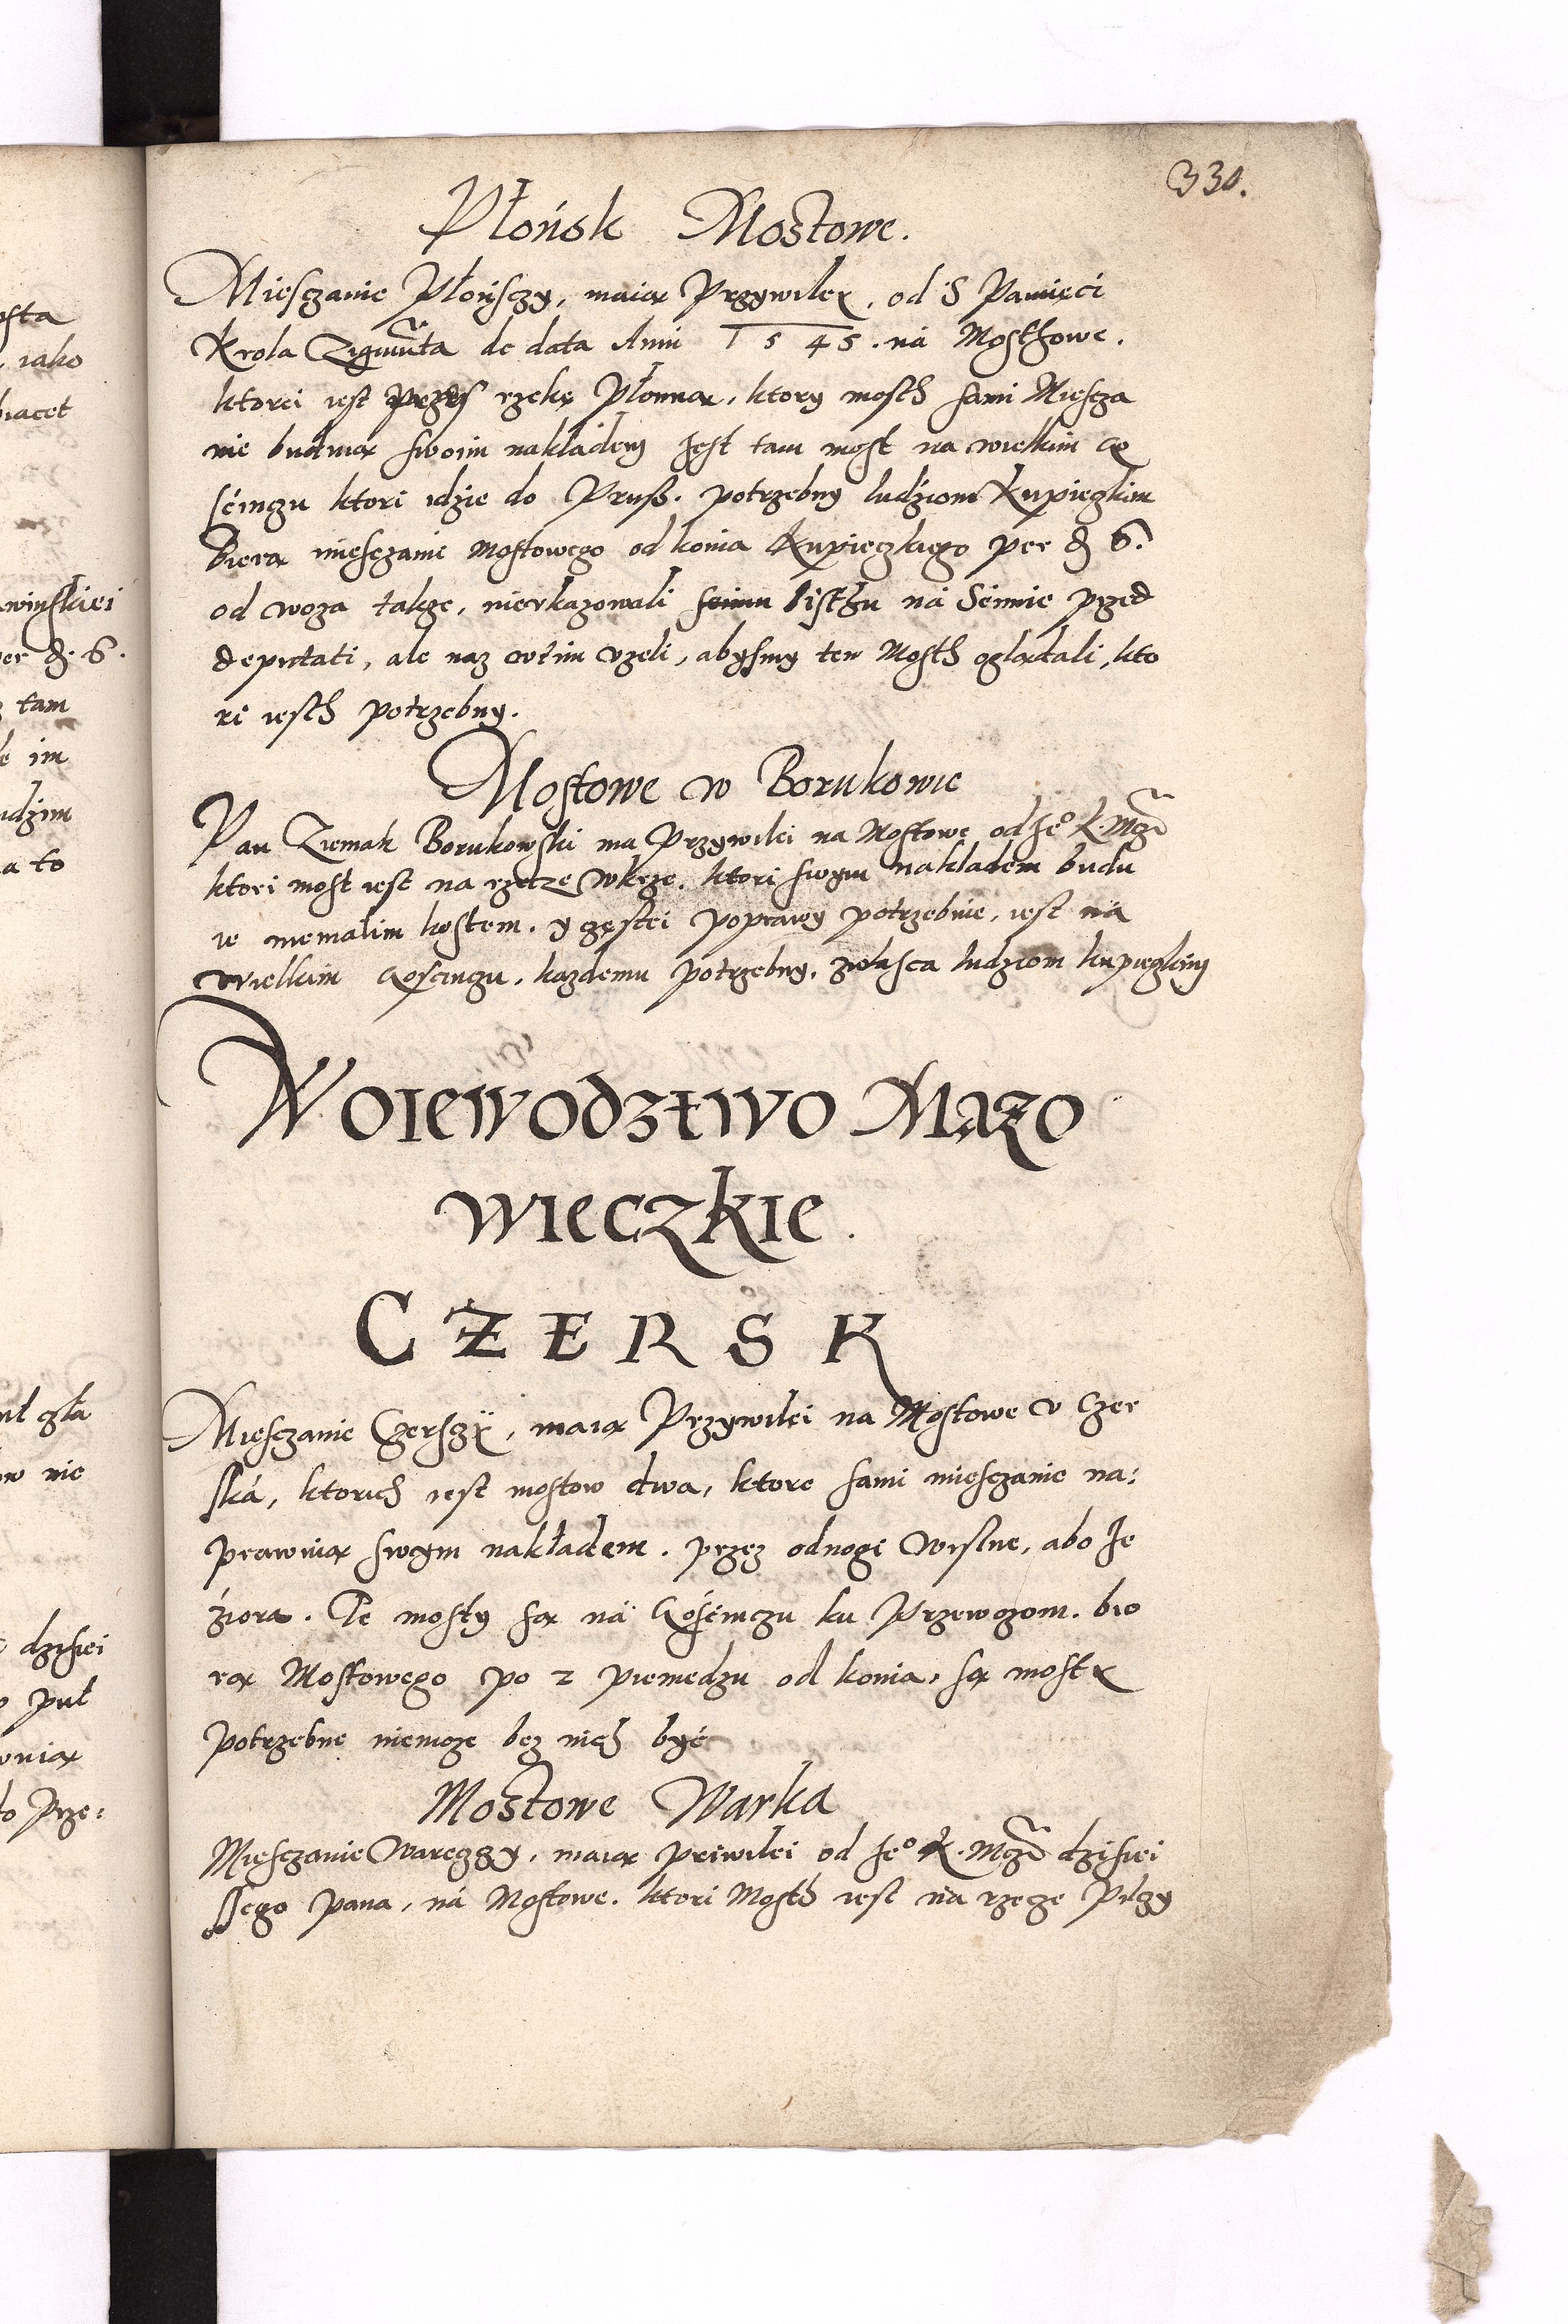 330.
Płońsk Mostowe.
Miesczanie Płońsczy, maią Przywilex, od S Pamięci
Krola Zigmūta de data Anni 1545. ná Mosthowe.
ktorei iest przes rzekę Płonną, ktory mosth sami Miescza
nie buduią swoim nakładem Jest tam most na wielkim go
sćinczu ktori idzie do Pruß. potrzebny ludziom Kupieczkim
Biorą miesczanie mostowego od konia Kupieczkiego per ₰ 6.
od woza takze, nieukazowali listhu ná Seimie przed
deputati, ale naz wtim uzeli, abysmy ten Mosth oglądali, kto
ri iesth potrzebny.
Mostowe w Borukowie
Pan Ziemak Borukowski ma Przywilei na Mostowe od Je° K. Mczi
ktori most iest na rzecze Wkrze. ktori swym nakladem budu
ie niemalim kostem. y częstei poprawy potrzebuie, iest ná
wielkim gosćinczu, kazdemu potrzebny, zwłasca ludziom kupieczkim
Woiewodztwo Mazo
wieczkie.
CZERSK
Miesczanie Czersczy, maią Przywilei na Mostowe v Czer
ská, ktorich iest mostow dwa, ktore sami miesczanie na:
prawuią swym nakładem. przez odnogi Wislne, abo Je
źiora. Te mosty są ná Gosćinczu ku Przewozom. bio
rą Mostowego po 2 piemedzu od konia, są mosty
potrzebne niemoze bez nich być
Mostowe Warka
Miesczanie Wareczzy, maią priwilei od Je° K. Mczi dzisiei
ssego pana, ná Mostowe. ktori Mosth iest na rzecze Pilczy